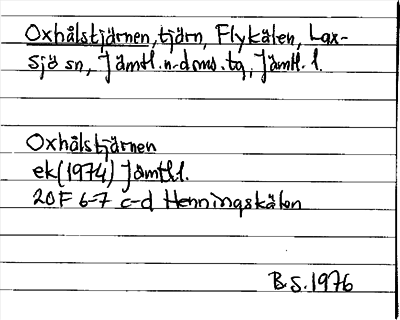 Oxhålstjärnen, tjärn, Flykälen, Lax-
sjö sn, Jämtl. n. doms. tg, Jämtl. l.
Oxhålstjärnen
ek (1974) Jämtl l.
20F 6-7 c-d Henningskälen
B.S. 1976